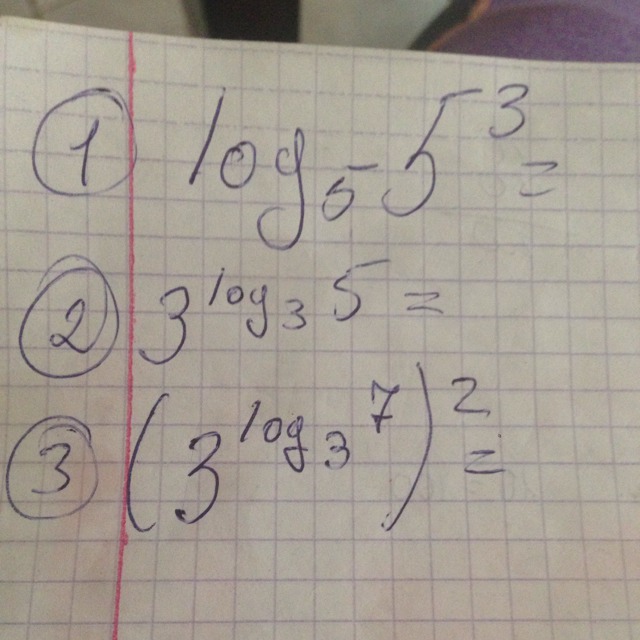 ① log₅ 5³ =
② 3^(log₃ 5) =
③ (3^(log₃ 7))² =